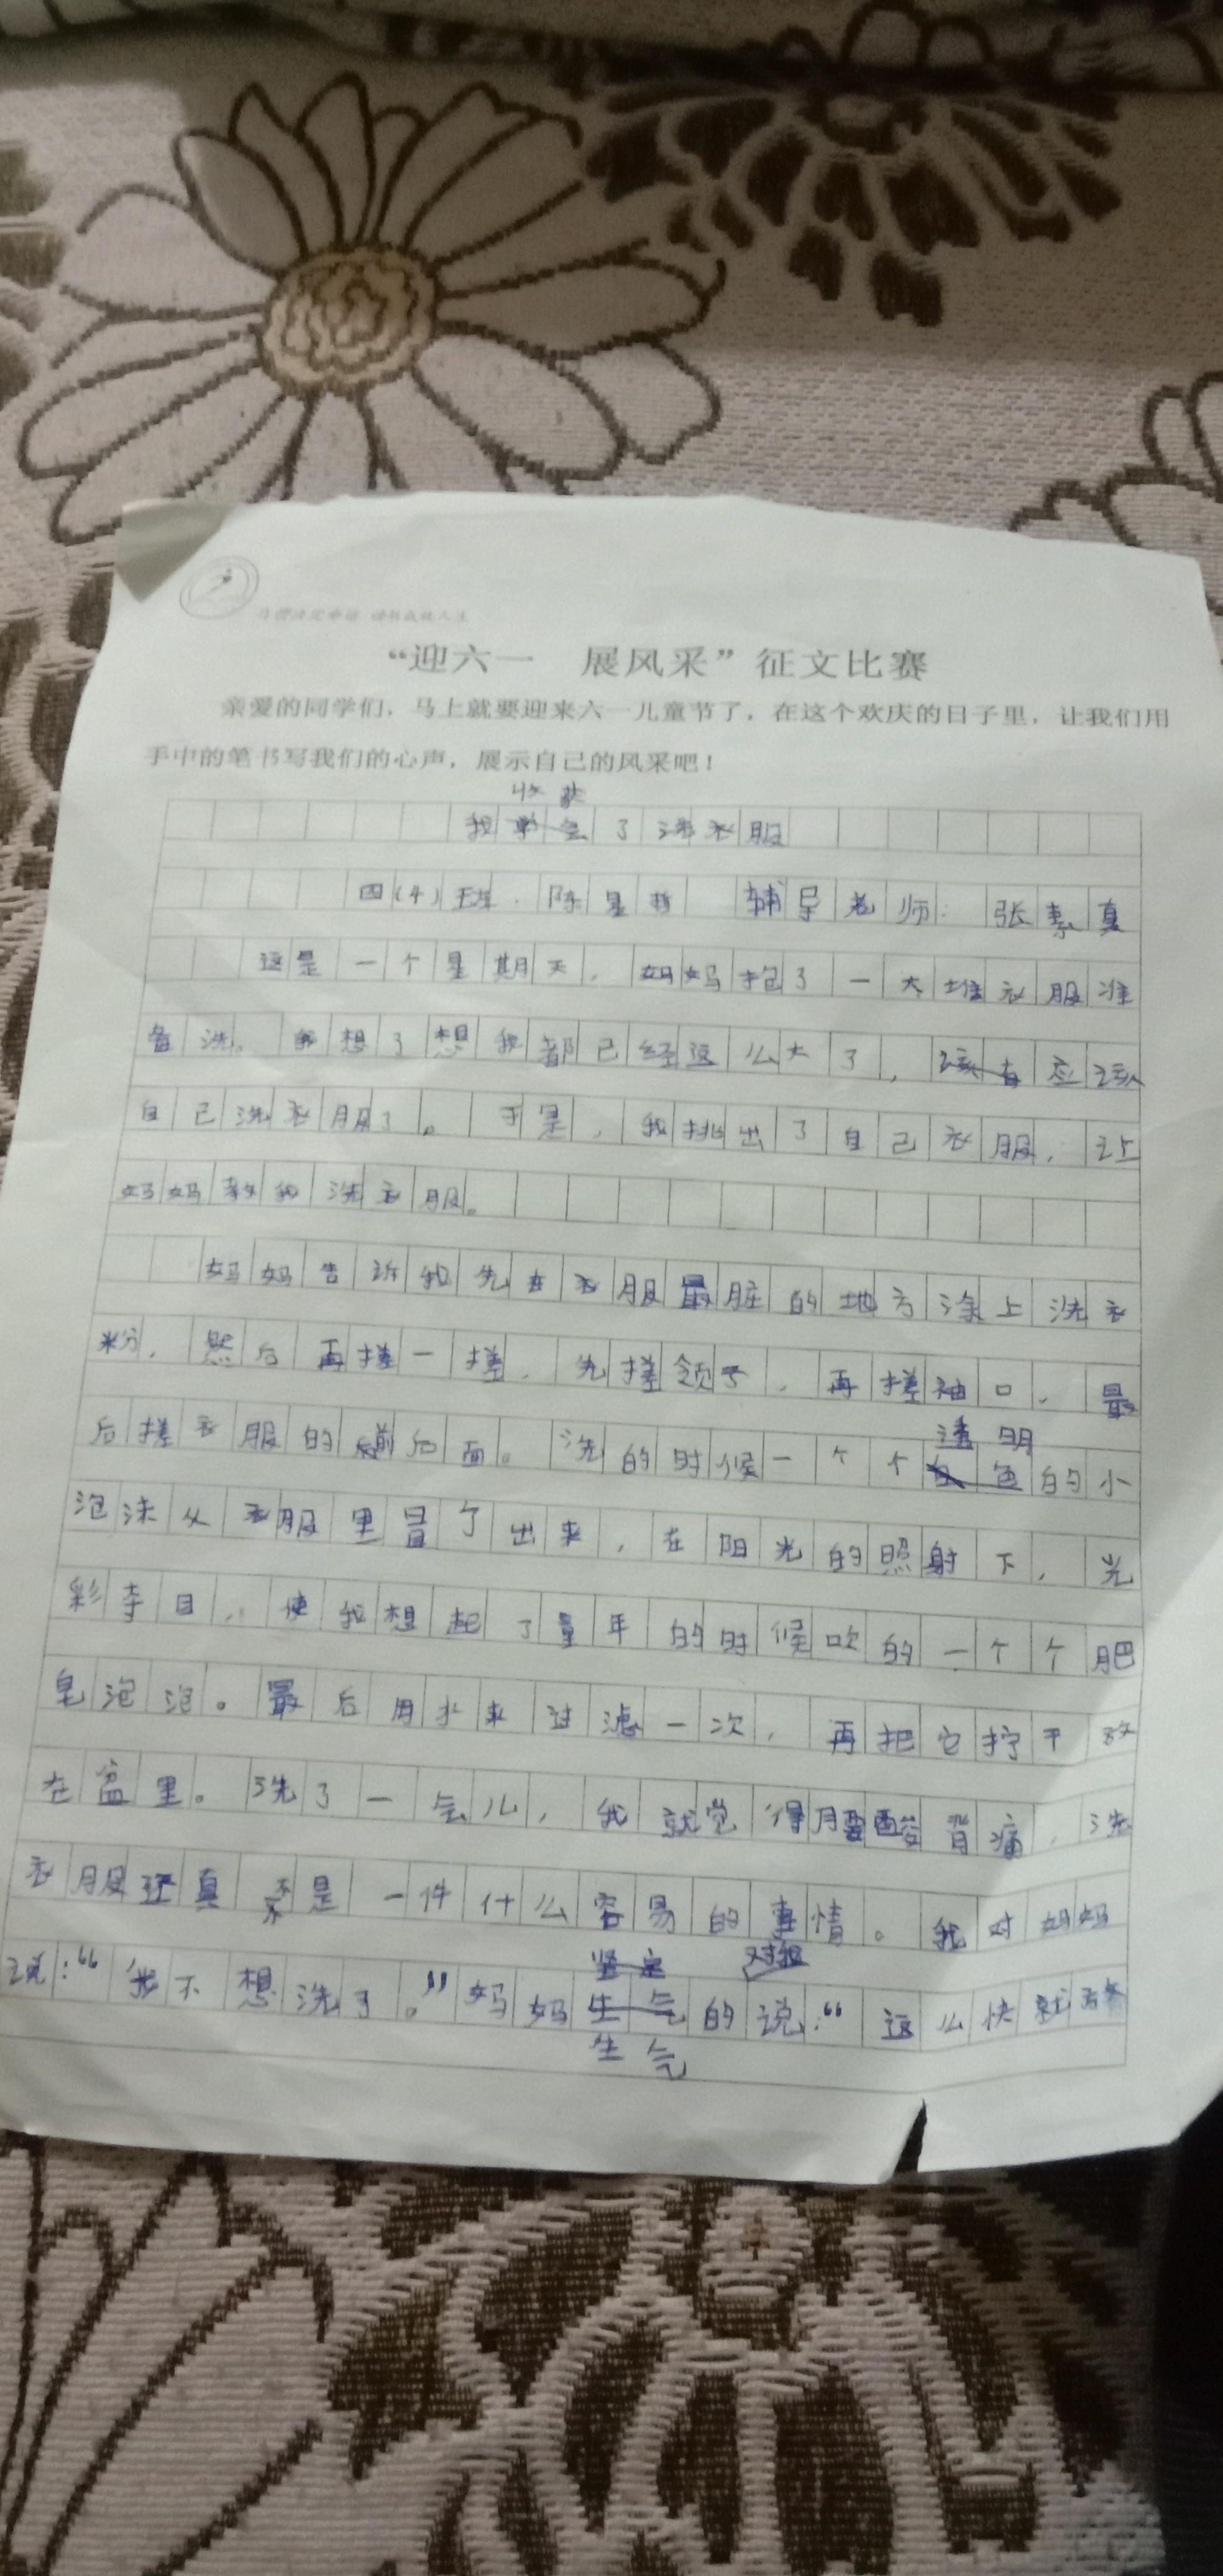 “迎六一 展风采”征文比赛
亲爱的同学们，马上就要迎来六一儿童节了，在这个欢庆的日子里，让我们用
手中的笔书写我们的心声，展示自己的风采吧！
收获
我学会了洗衣服
四(4)班 陈星哲 辅导老师：张素真
这是一个星期天，妈妈抱了一大堆衣服准
备洗。我想了想我都已经这么大了，该有应该
自己洗衣服了。于是，我挑出了自己衣服，让
妈妈教我洗衣服。
妈妈告诉我先在衣服最脏的地方涂上洗衣
粉，然后再搓一搓，先搓领子，再搓袖口，最
后搓衣服的前后面。洗的时候一个个白色的小
透明
泡沫从衣服里冒了出来，在阳光的照射下，光
彩夺目，使我想起了童年的时候吹的一个个肥
皂泡泡。最后用水来过滤一次，再把它拧干放
在盆里。洗了一气儿，我就觉得腰酸背痛，洗
衣服还真不是一件什么容易的事情。我对妈妈
说：“我不想洗了。”妈妈生气的说：“这么快就
坚定 对我
生气